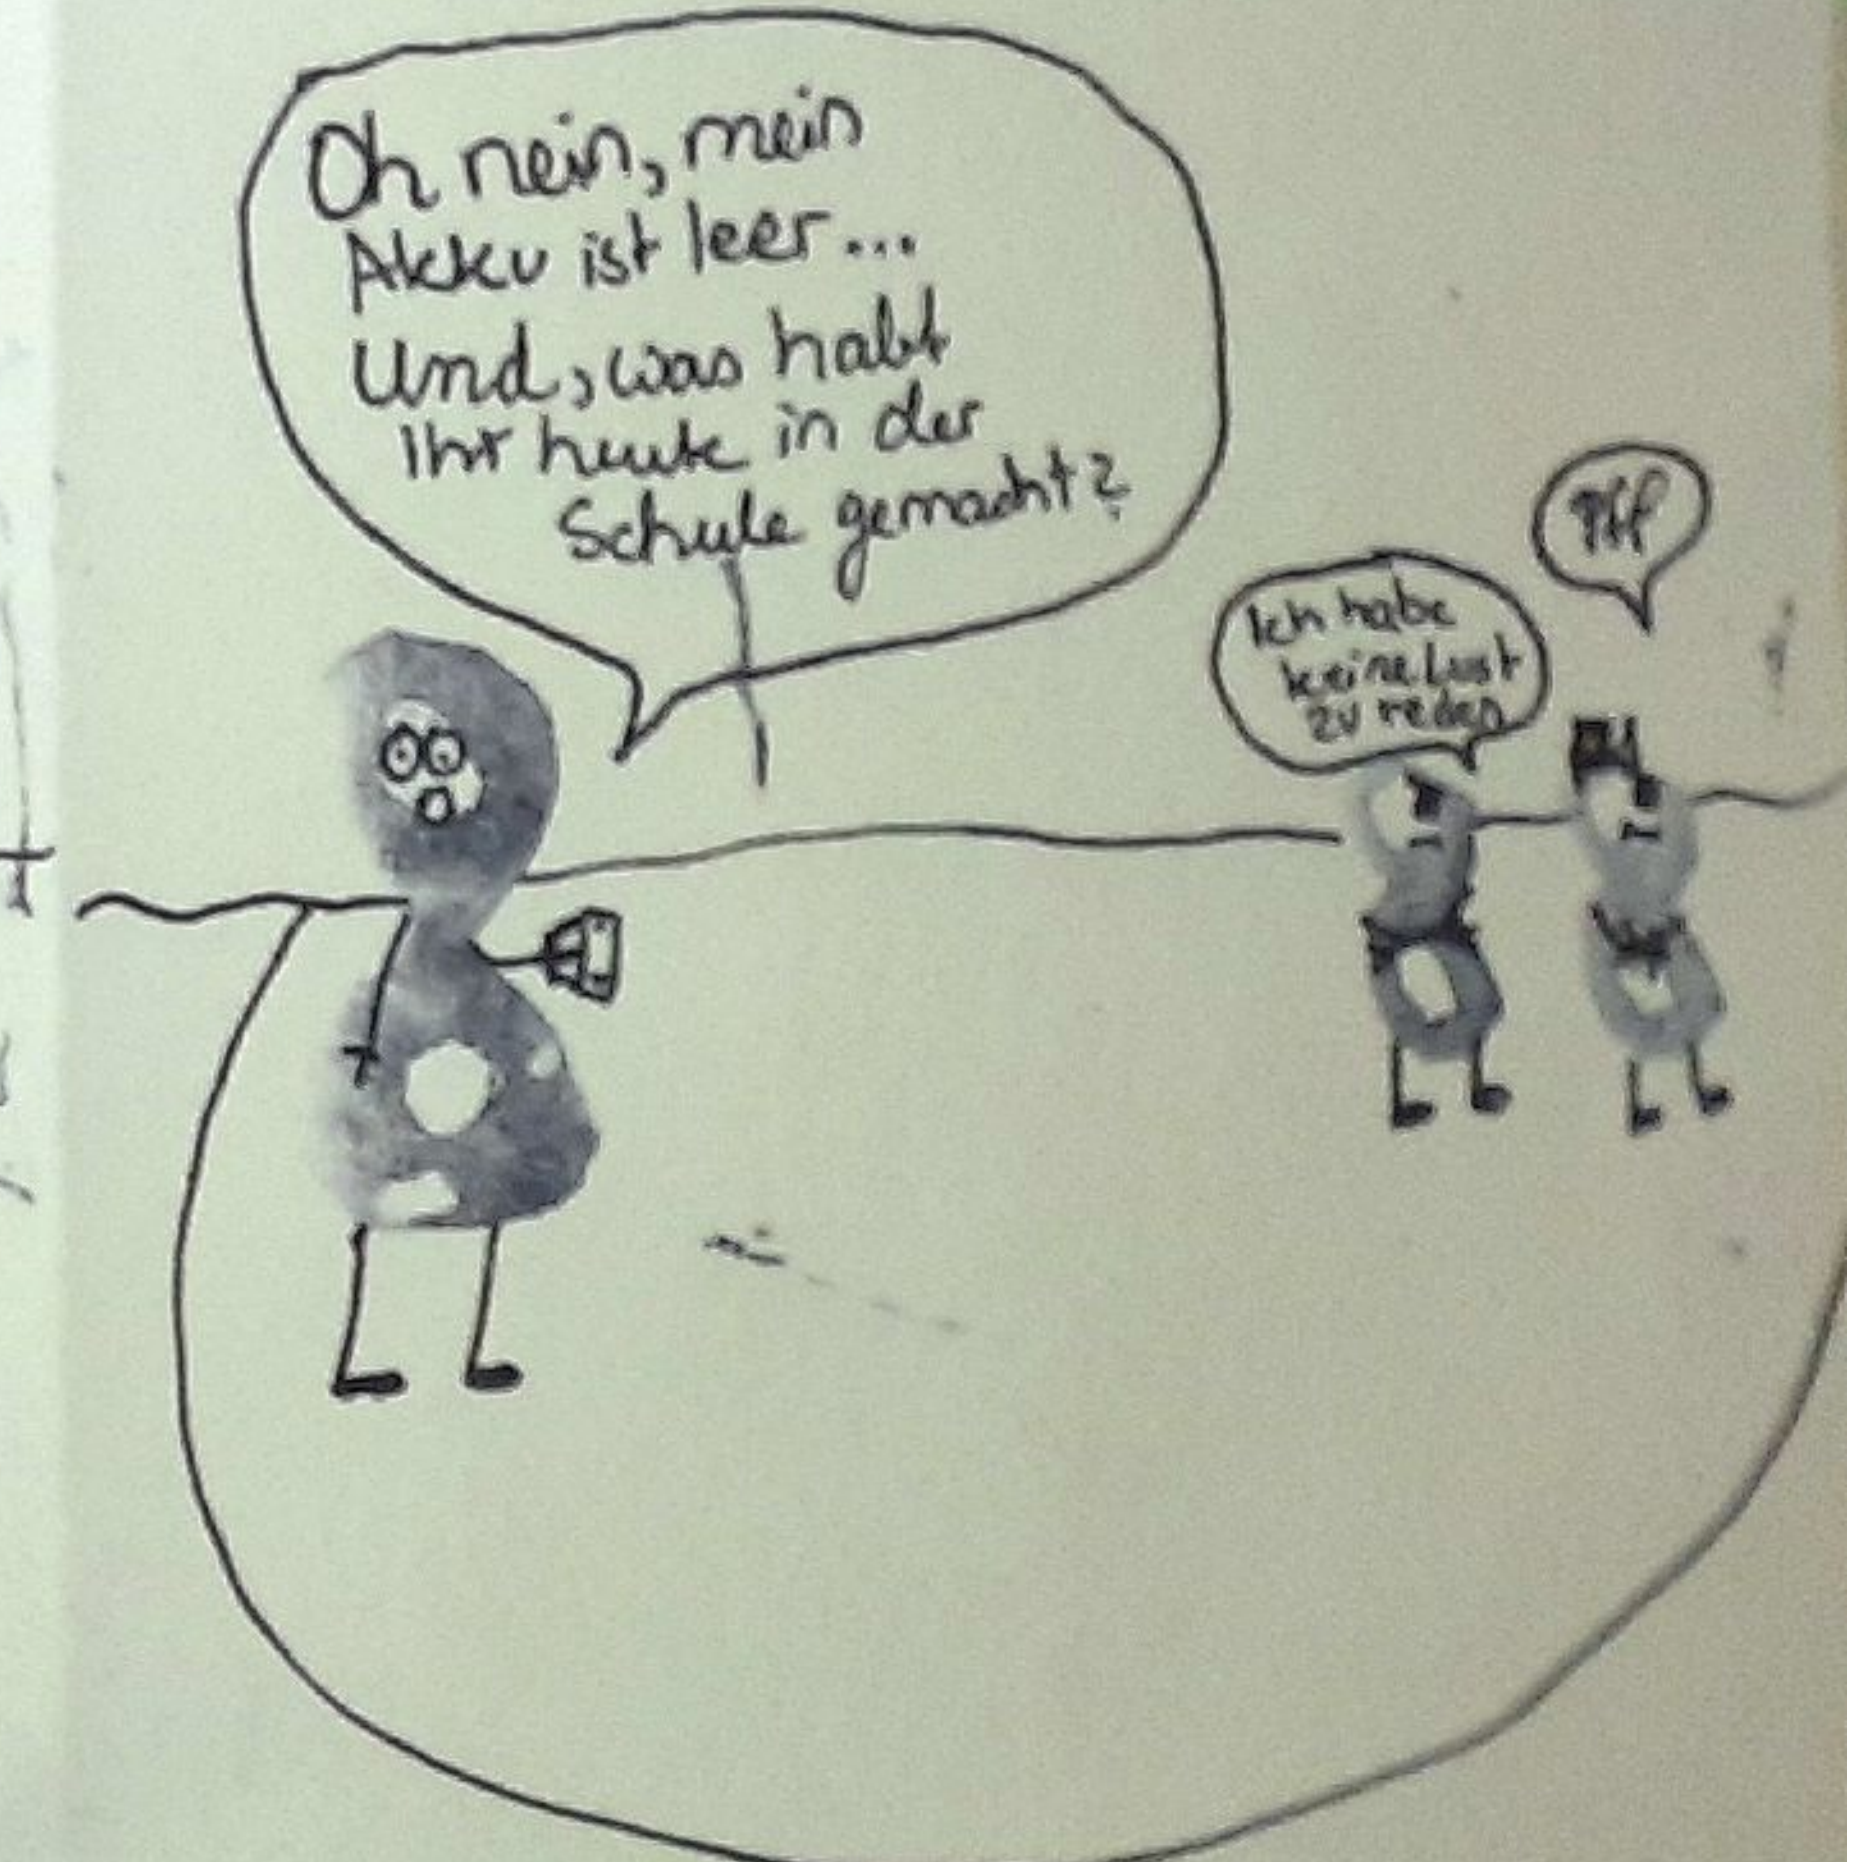 Oh nein, mein
Akku ist leer...
Und, was habt
Ihr heute in der
Schule gemacht?
Pff
Ich habe
keine Lust
zu reden